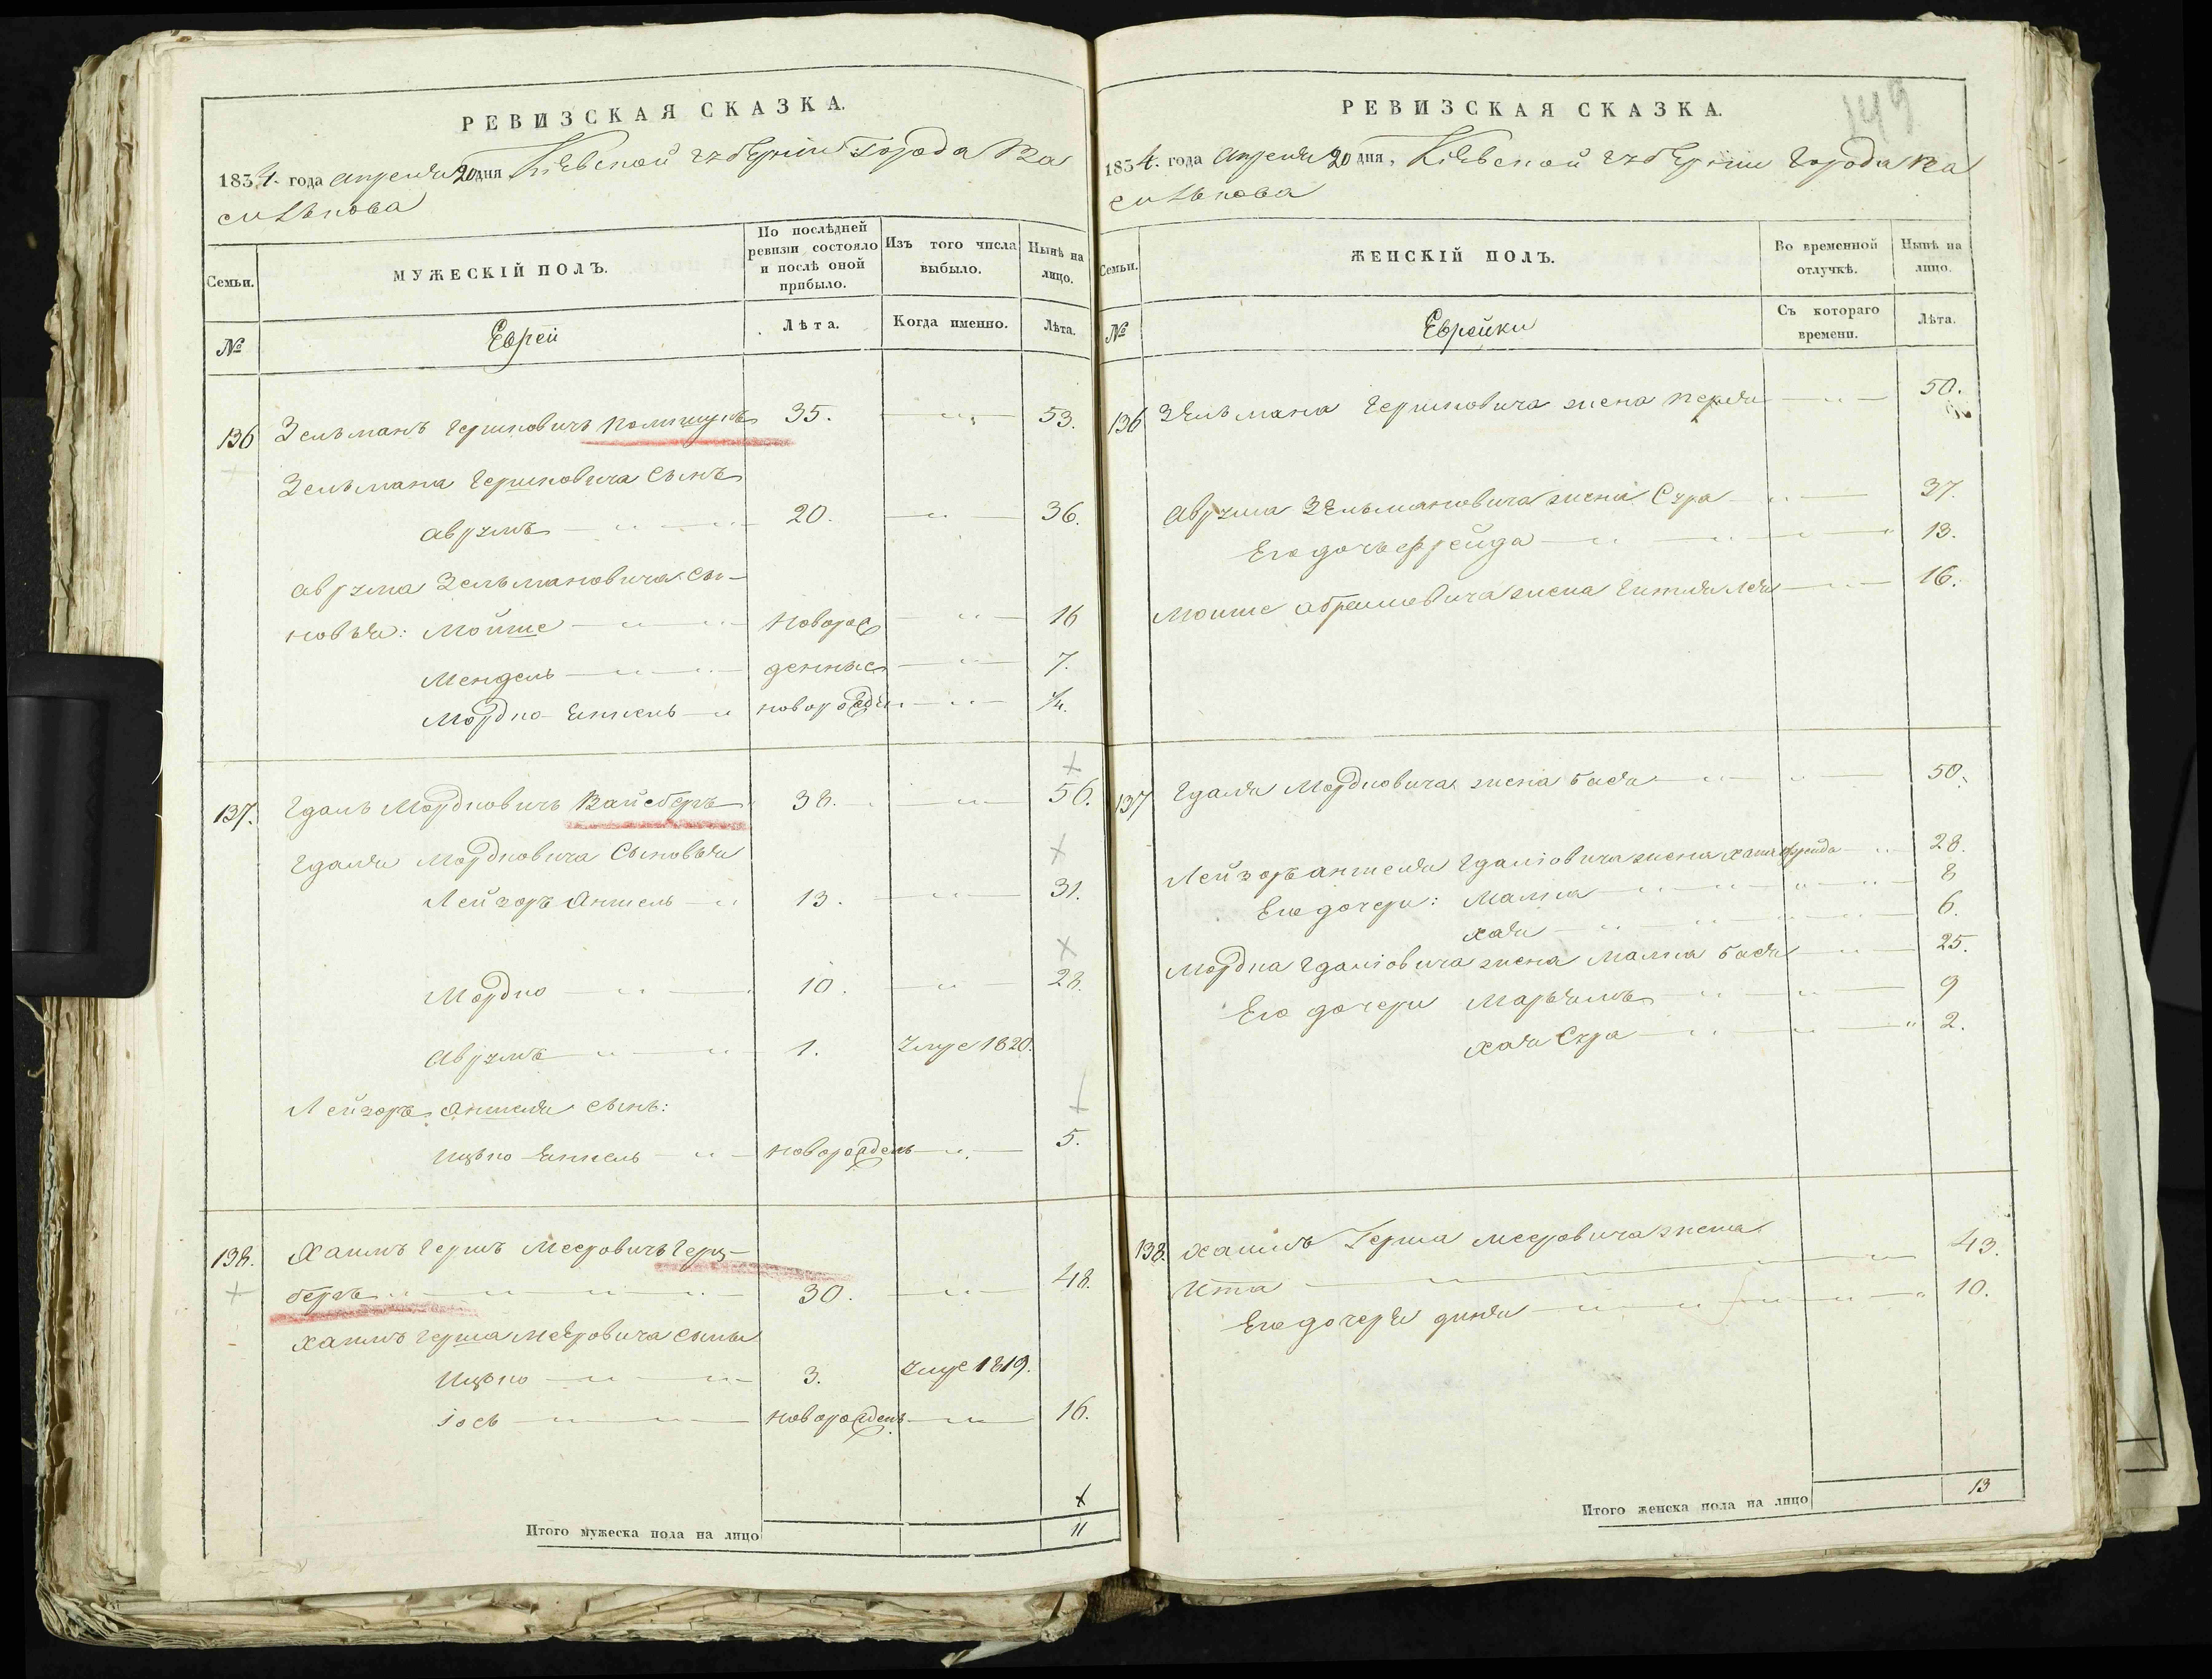 РЕВИЗСКАЯ СКАЗКА.
1834. года апреля 20 дня Кіевской губерніи города Ва
силькова
Семьи.
МУЖЕСКІЙ ПОЛЪ.
По послѣдней ревизіи состояло и послѣ оной прибыло.
Изъ того числа выбыло.
Нынѣ на лицо.
№
Евреи
Лѣта.
Когда именно.
Лѣта.
136 Зельманъ Гершковичъ 35. 53.
Зельмана Гершковича сынъ
Аврумъ 20. 36.
Аврума Зельмановича сы-
новья: Мойше новорож 16
Мендель денные 7.
Мордко Янкель новорожден 1/4.
137. Гдаль Мордковичъ Вайсберъ 38. 56.
Гдаля Мордковича сыновья
Лейзоръ Аншель 13. 31.
Мордко 10. 28.
Аврумъ 1. умре 1820.
Лейзоръ Аншеля сынъ:
Ицько Янкель новорожденъ 5.
138. Хаимъ Гершъ Мееровичъ Герц-
беръ 30. 48.
Хаимъ Герша Мееровича сыны
Ицько 3. умре 1819.
Іось новорожденъ 16.
Итого мужеска пола на лицо 11
РЕВИЗСКАЯ СКАЗКА.
149
1834. года апреля 20 дня, Кіевской губерніи города Ва
силькова
Семьи.
ЖЕНСКІЙ ПОЛЪ.
Во временной отлучкѣ.
Нынѣ на лицо.
№
Еврейки
Съ котораго времени.
Лѣта.
136 Зельмана Гершковича жена Перля 50.
Аврума Зельмановича жена Сура 37.
Его дочь Фрейда 13.
Мойше Абрамовича жена Гитля Лея 16.
137 Гдаля Мордковича жена Бася 50.
Лейзоръ Аншеля Гдаліовича жена Хана Фрейда 28.
Его дочери: Малка 8
Хая 6.
Мордка Гдаліовича жена Малка Бася 25.
Его дочери Марьямъ 9
Хая Сура 2.
138. Хаимъ Герша Мееровича жена
Итта 43.
Его дочеря Диня 10.
Итого женска пола на лицо 13